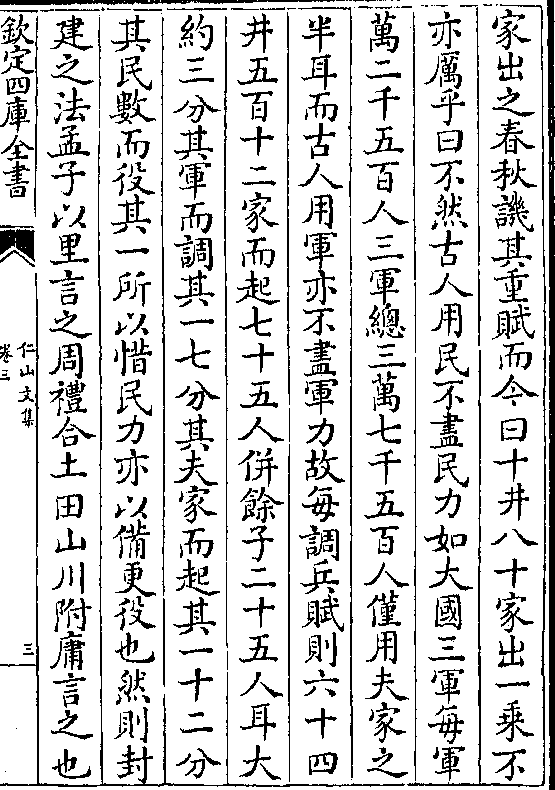 家出之春秋譏其重賦而今曰十井八十家出一乘不
亦厲乎曰不然古人用民不盡民力如大國三軍每軍
萬二千五百人三軍總三萬七千五百人僅用夫家之
半耳而古人用軍亦不盡軍力故每調兵賦則六十四
井五百十二家而起七十五人併餘子二十五人耳大
約三分其軍而調其一七分其夫家而起其一十二分
其民數而役其一所以惜民力亦以備更役也然則封
建之法孟子以里言之周禮合土田山川附庸言之也
欽定四庫全書
仁山文集
卷三
三